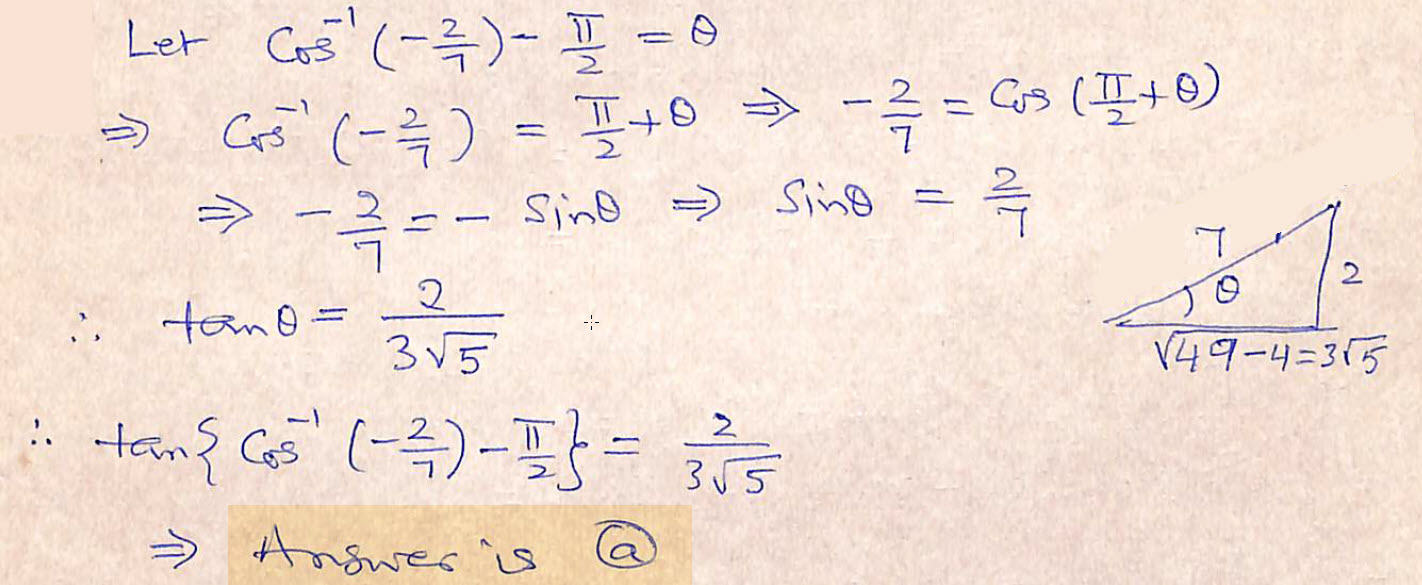 Let Cos⁻¹(-2/7) - π/2 = θ
⇒ Cos⁻¹(-2/7) = π/2 + θ ⇒ -2/7 = Cos(π/2 + θ)
⇒ -2/7 = - Sinθ ⇒ Sinθ = 2/7
7
θ
2
√49-4=3√5
∴ tanθ = 2/3√5
∴ tan{Cos⁻¹(-2/7) - π/2} = 2/3√5
⇒ Answer is ⓐ